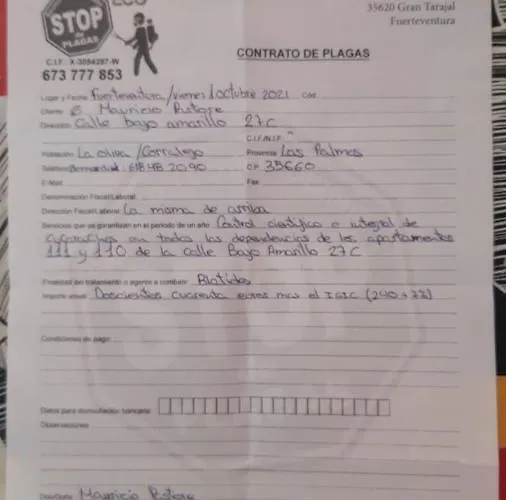 ECO
STOP
de
PLAGAS
C.I.F.: X-3054287-W
673 777 853
35620 Gran Tarajal
Fuerteventura
CONTRATO DE PLAGAS
Lugar y Fecha: Fuerteventura / viernes 1 octubre 2021
Cliente: Mauricio Pastore
Dirección: Calle bajo amarillo 27C
C.I.F/N.I.F.
Población: La oliva / Corralejo Provincia: Las Palmas
Teléfono: 618 48 2040 C.P. 35660
E-Mail: Fax:
Denominación Fiscal/Laboral:
Dirección Fiscal/Laboral: La misma de arriba
Servicios que se garantizan en el periodo de un año: Control científico e integral de
cucarachas en todas las dependencias de los apartamentos
111 y 110 de la Calle Bajo Amarillo 27C
Finalidad del tratamiento o agente a combatir: Blatidos
Importe anual: Doscientos cuarenta euros mas el IGIC
Condiciones de pago:
Datos para domiciliación bancaria:
Observaciones:
Don/Doña: Mauricio Pastore